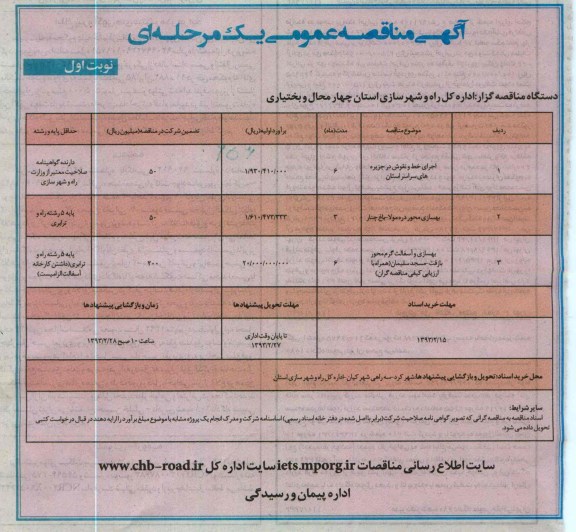 آگهی مناقصه عمومی یک مرحله ای
نوبت اول
دستگاه مناقصه گزار: اداره کل راه و شهرسازی استان چهار محال و بختیاری
ردیف موضوع مناقصه مدت(ماه) برآورد اولیه(ریال) تضمین شرکت در مناقصه(میلیون ریال) حداقل پایه و رشته
۱ اجرای خط و نقوش در جزیره های سراسر استان ۶ ۱/۹۳۰/۴۱۰/۰۰۰ ۵۰ دارنده گواهینامه صلاحیت معتبر از وزارت راه و شهرسازی
۲ بهسازی محور دره مولا-باغ چنار ۳ ۱/۶۱۰/۴۷۳/۳۳۳ ۵۰ پایه ۵ رشته راه و ترابری
۳ بهسازی و آسفالت گرم محور بازفت-مسجد سلیمان(همراه با ارزیابی کیفی مناقصه گران) ۶ ۲۰/۰۰۰/۰۰۰/۰۰۰ ۲۰۰ پایه ۵ رشته راه و ترابری(داشتن کارخانه آسفالت الزامیست)
مهلت خرید اسناد مهلت تحویل پیشنهادها زمان و بازگشایی پیشنهادها:
۱۳۹۳/۲/۱۵ تا پایان وقت اداری ۱۳۹۳/۲/۲۷ ساعت ۱۰ صبح ۱۳۹۳/۲/۲۸
محل خرید اسناد، تحویل و بازگشایی پیشنهادها: شهرکرد-سه راهی شهر کیان-اداره کل راه و شهرسازی استان
سایر شرایط:
اسناد مناقصه به مناقصه گرانی که تصویر گواهی نامه صلاحیت شرکت(برابر با اصل شده در دفتر خانه اسناد رسمی) اساسنامه شرکت و مدرک انجام یک پروژه مشابه با موضوع مبلغ برآورد را ارایه دهند در قبال درخواست کتبی
تحویل داده می شود.
سایت اطلاع رسانی مناقصات iets.mporg.ir سایت اداره کل www.chb-road.ir
اداره پیمان و رسیدگی